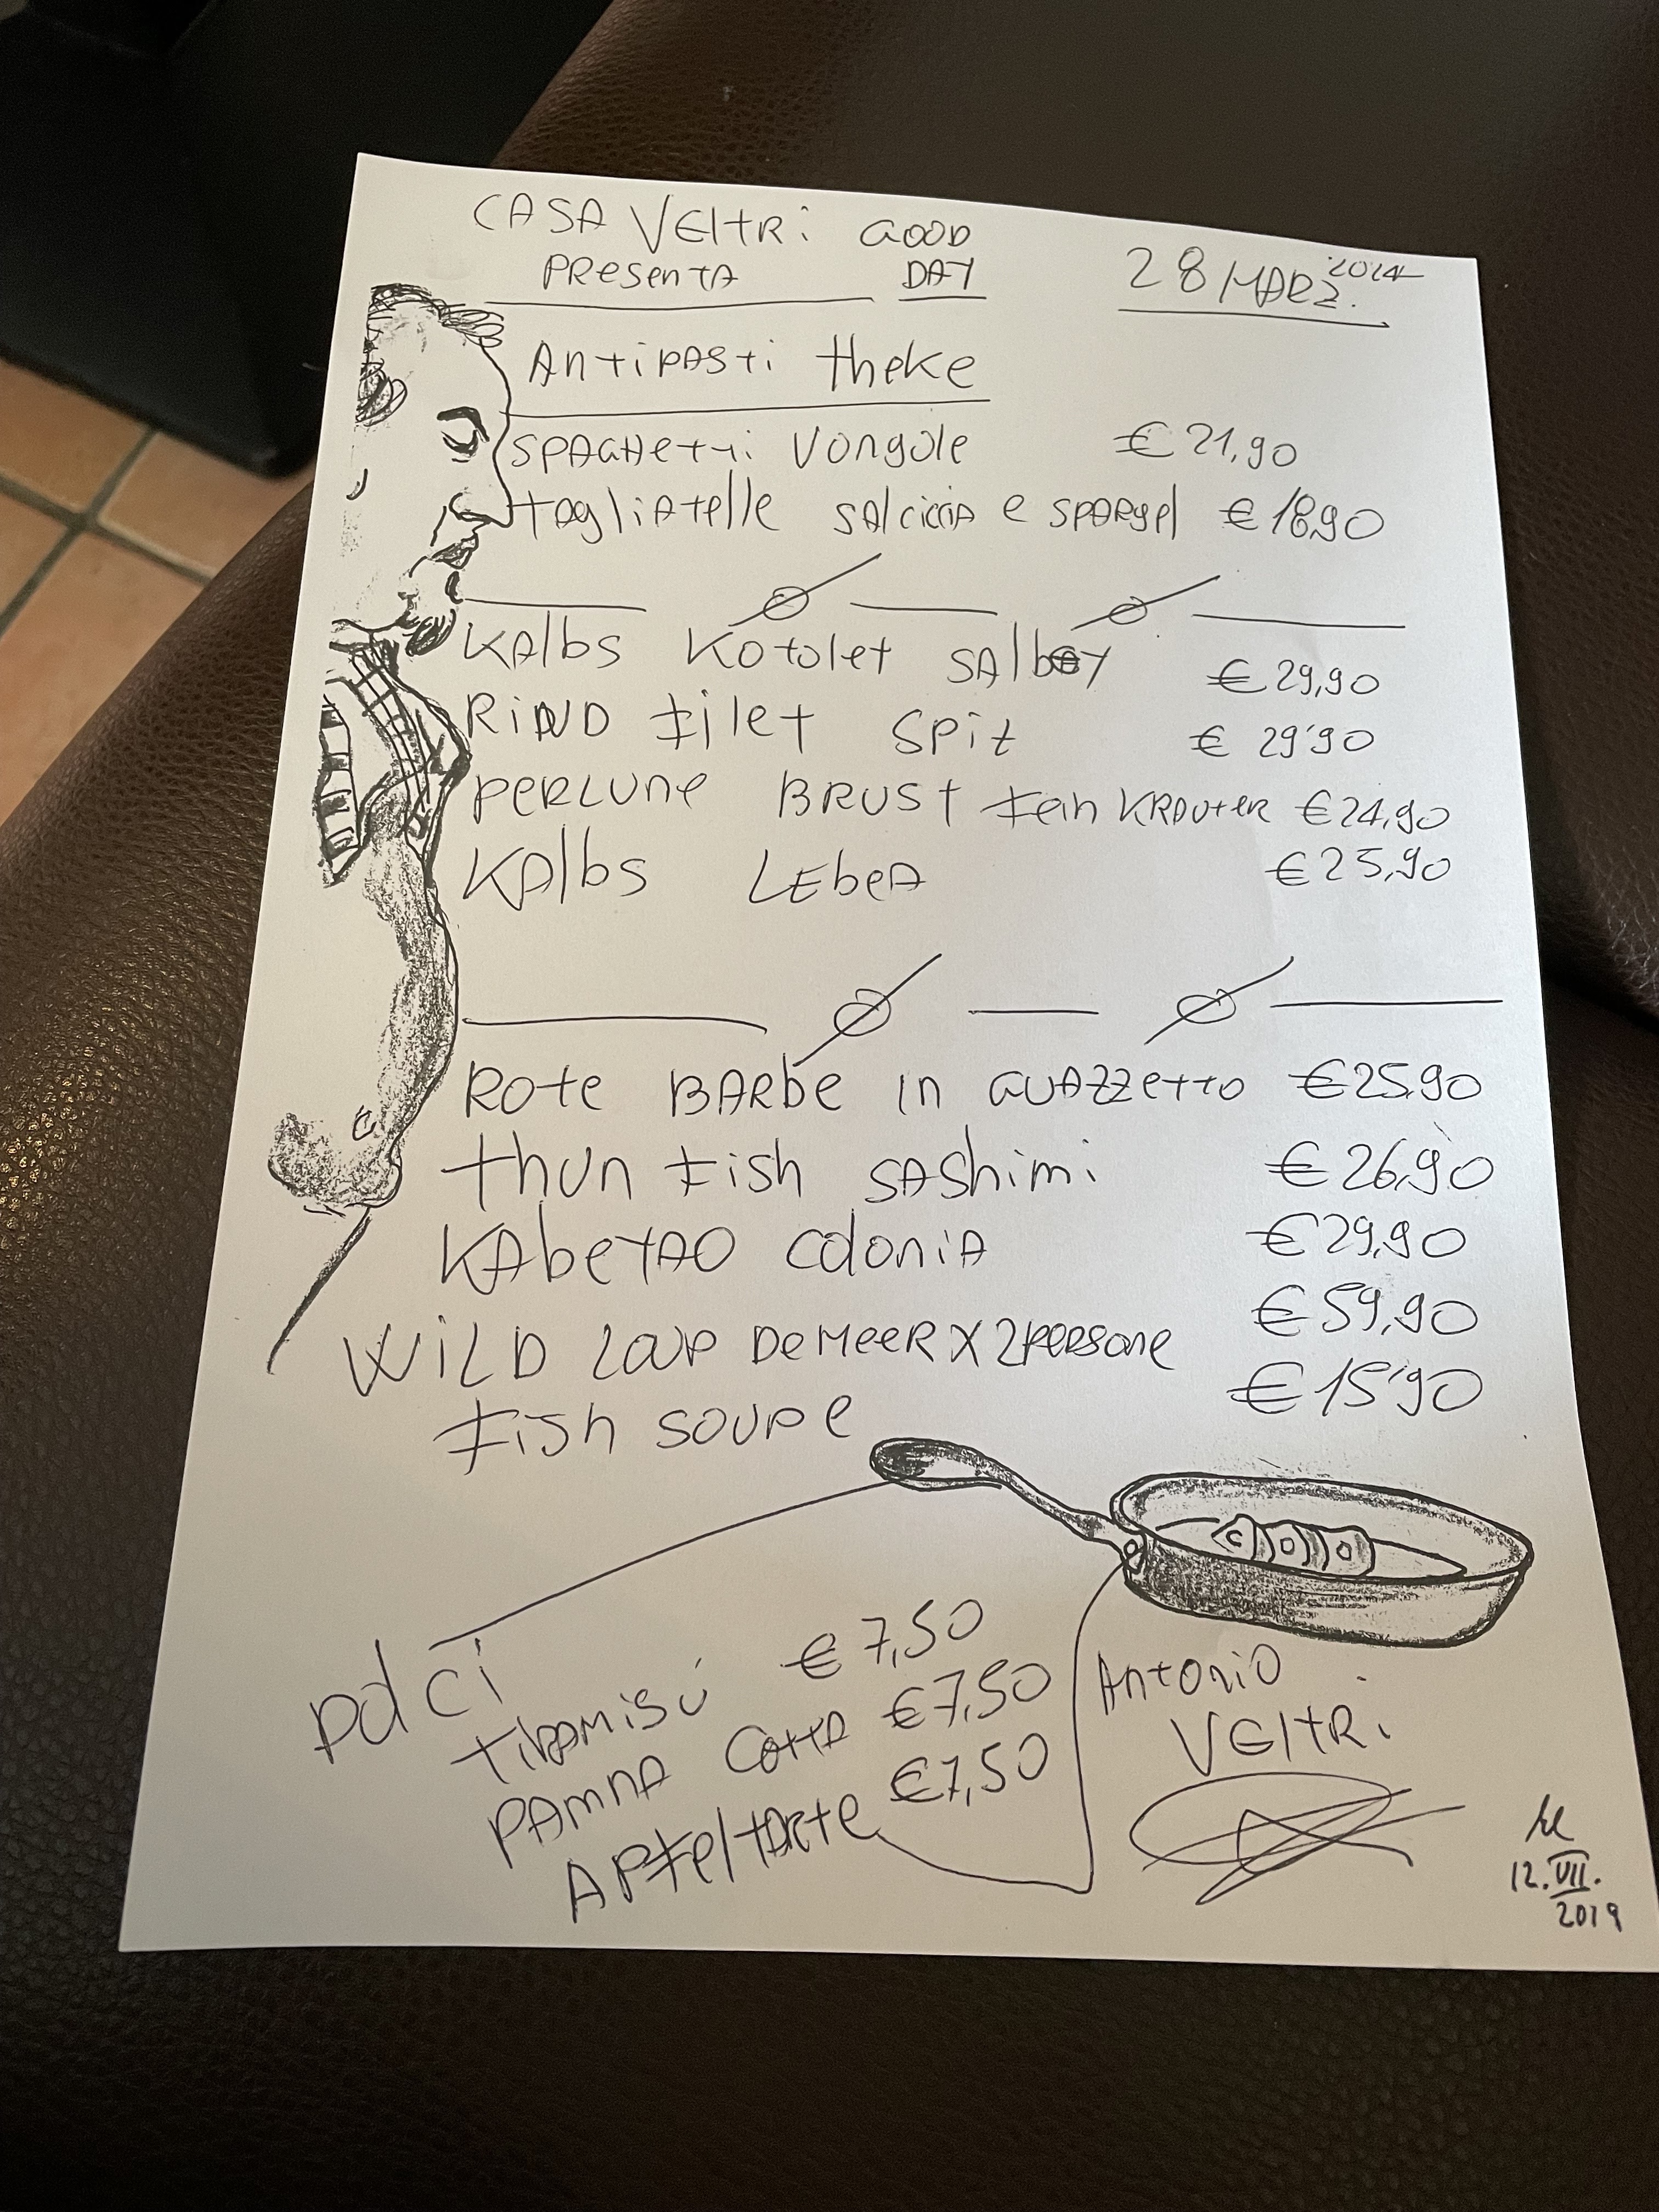 CASA VEltRi GOOD
PResentA DAY
28 MARZ. 2024
Antipasti theke
SPAGHetti Vongole € 21,90
tagliatelle salciccia e spargel € 18,90
Kalbs Kotolet salbey € 29,90
RiND filet spiz € 29'90
PERLUNe BRUSt fein KRauteR € 24,90
KAlbs LEbeR € 25,90
Rote BARbe in GUAZZetto € 25,90
thun fish sashimi € 26,90
KAbeYAO colonia € 29,90
WILD LOUP DeMeeR X 2 PERSone € 59,90
fish soupe € 15'90
COO
Dolci
tiramisú € 7,50
PAmnA CottA € 7,50
APfeltARte € 7,50
Antonio
VEltRi
12.VII.
2019